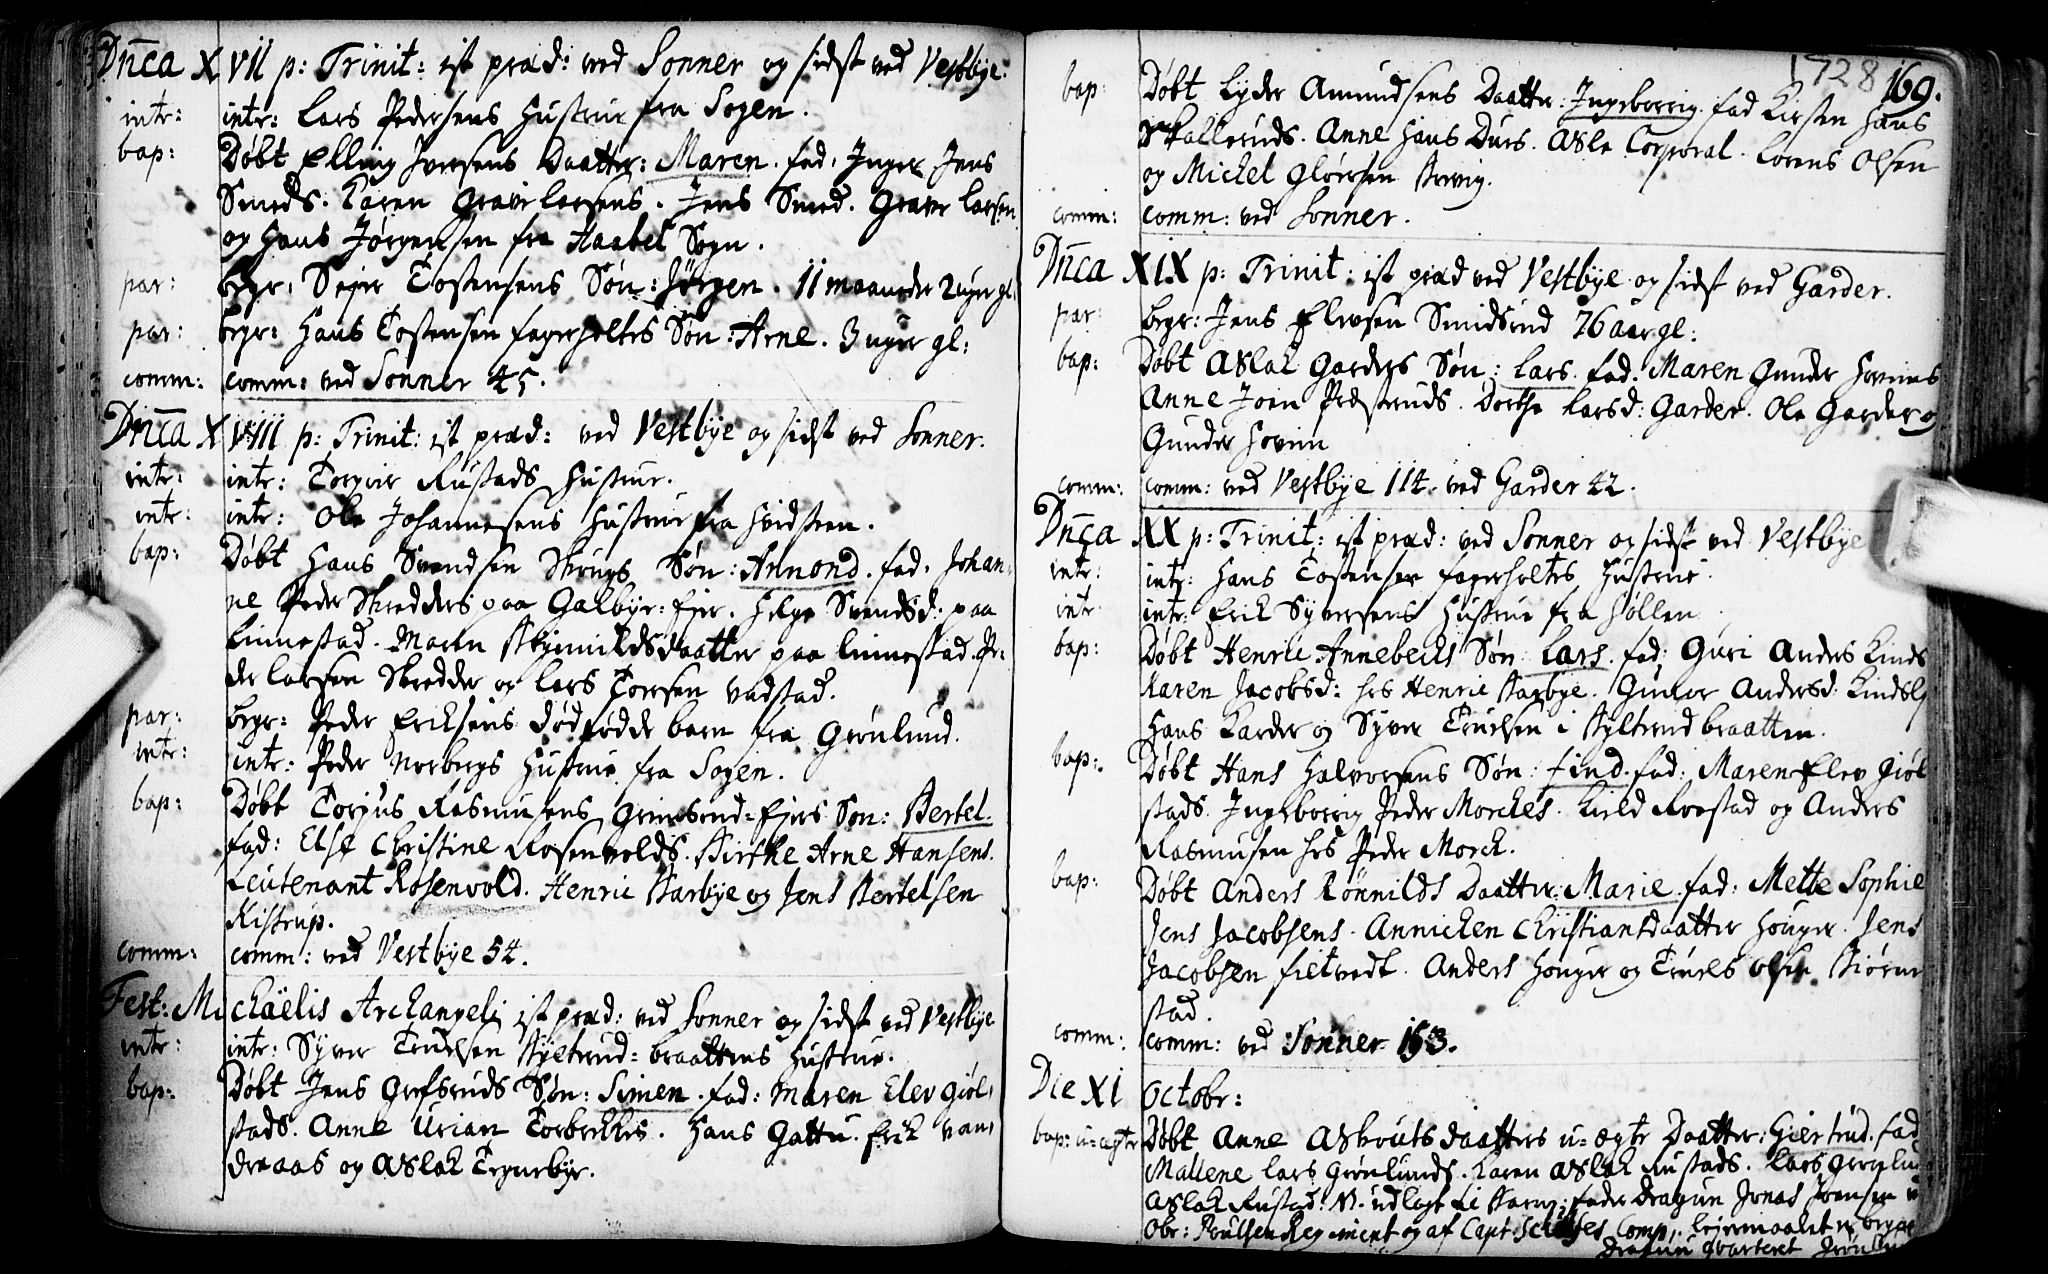 Dn̄ca XVII p: Trinit: ist præd: ved Sonner og sidst ved Vestbye.
intr: intr: Lars Pedersens Hustrue fra Sogen.
bap: Døbt Elling Iversens Daatter: Maren. fad. Inger Jens
Smeds. Karen Graver Larsens. Jens Smed. Graver Larsen
og Hans Jørgensen fra Haabel Sogn.
par: begr: Sejer Tostensens Søn: Jørgen. 11 maaneder 2 uger gl:
par: begr: Hans Tostensen fagerholtes Søn: Arne. 3 uger gl:
comm: comm: ved Sonner 45.
Dn̄ca XVIII p: Trinit: ist præd: ved Vestbye og sidst ved Sonner.
intr: intr: Torger Rustads Hustrue.
intr: intr: Ole Johannesens Hustrue fra Hvidsteen.
bap: Døbt Hans Svendsen Søn: Amond. fad. Johan-
ne Peder Skredders paa Galbye-Ejer. Helge Svendsd: paa
Linnestad. Maren daatter paa Linnestad. Pe-
der Larsen Skredder og Lars Toresen Vadstad.
par: begr: Peder Eriksens dødfødde barn fra Grønlund.
intr: intr: Peder Norbergs Hustrue fra Sogen.
bap: Døbt Torjus Rasmusens Grimsrud-Ejers Søn: Bertel.
fad: Else Christine Rosenvolds. Birthe Arne Hansens.
Leutenant Rosenvold. Henric Karbye og Jens Bertelsen
Kistrup.
comm: comm: ved Vestbye 54.
Fest: Michäelis Archangeli ist præd: ved Sonner og sidst ved Vestbye
intr: intr: Syver Truelsen Kyltrud-braattens Hustrue.
bap: Døbt Jens Grefsruds Søn: Simen. fad: Maren Elev Giøl-
stads. Anne Urian Torbekkes. Hans Gattu. Erik Ram-
draas og Aslak Tegnebye.
1728 169.
bap: Døbt Lyder Amundsens Daatter: Ingeborrig. fad Kirsten Hans
Skalleruds. Anne Hans Duus. Asle Corporal. Lorens Olsen
og Michel Gløersen
comm: comm: ved Sonner.
Dn̄ca XIX p: Trinit: ist præd ved Vestbye og sidst ved Garder.
par: begr: Jens Elevsen Smidsrud 76 aar gl:
bap: Døbt Aslak Garders Søn: Lars. fad. Maren Gunder Hovins
Anne Joen Præstruds. Dorthe Larsd: Garder. Ole Garder og
Gunder Hovin
comm: comm: ved Vestbye 114. ved Garder 42.
Dn̄ca XX p: Trinit: ist præd: ved Sonner og sidst ved Vestbye
intr: intr: Hans Tostensen fagerholtes Hustrue.
intr: intr: Erik Syversens Hustrue fra Høllen
bap: Døbt Henric Annebecks Søn Lars. fad: Guri Anders Kinds
Karen Jacobsd: hos Henric Karbye. Gunor Andersd: Kinds
Hans Karder og Syver Truelsen i Kyltrudbraatten.
bap: Døbt Hans Halvorsens Søn: find. fad: Maren Elev Giøl
stads. Ingeborrig Peder Morckes. Kield Roestad og Anders
Rasmusen hos Peder Morck.
bap: Døbt Anders Rönnilds Daatter: Marie. fad: Mette Sophie
Jens Jacobsens. Annicken Christiansdaatter Houger. Jens
Jacobsen fietvedt. Anders Houger og Truels Olsen Biørn
stad.
comm: comm: ved Sonner 153.
Die XI Octobr:
bap: u-ægte Døbt Anne Askoutsdaatters u-ægte Daatter: Giertrud. fad
Mallene Lars Grønlunds. Karen Aslak Rustads. Lars Grønlu
Aslak Rustad. N. udlagt til Barne-fader Dragun Jonas Joensen
Obr: Poulsen Regiment og af Capt: Comp: lejermaalet er begaa
Dragun qvarteret Grønlund